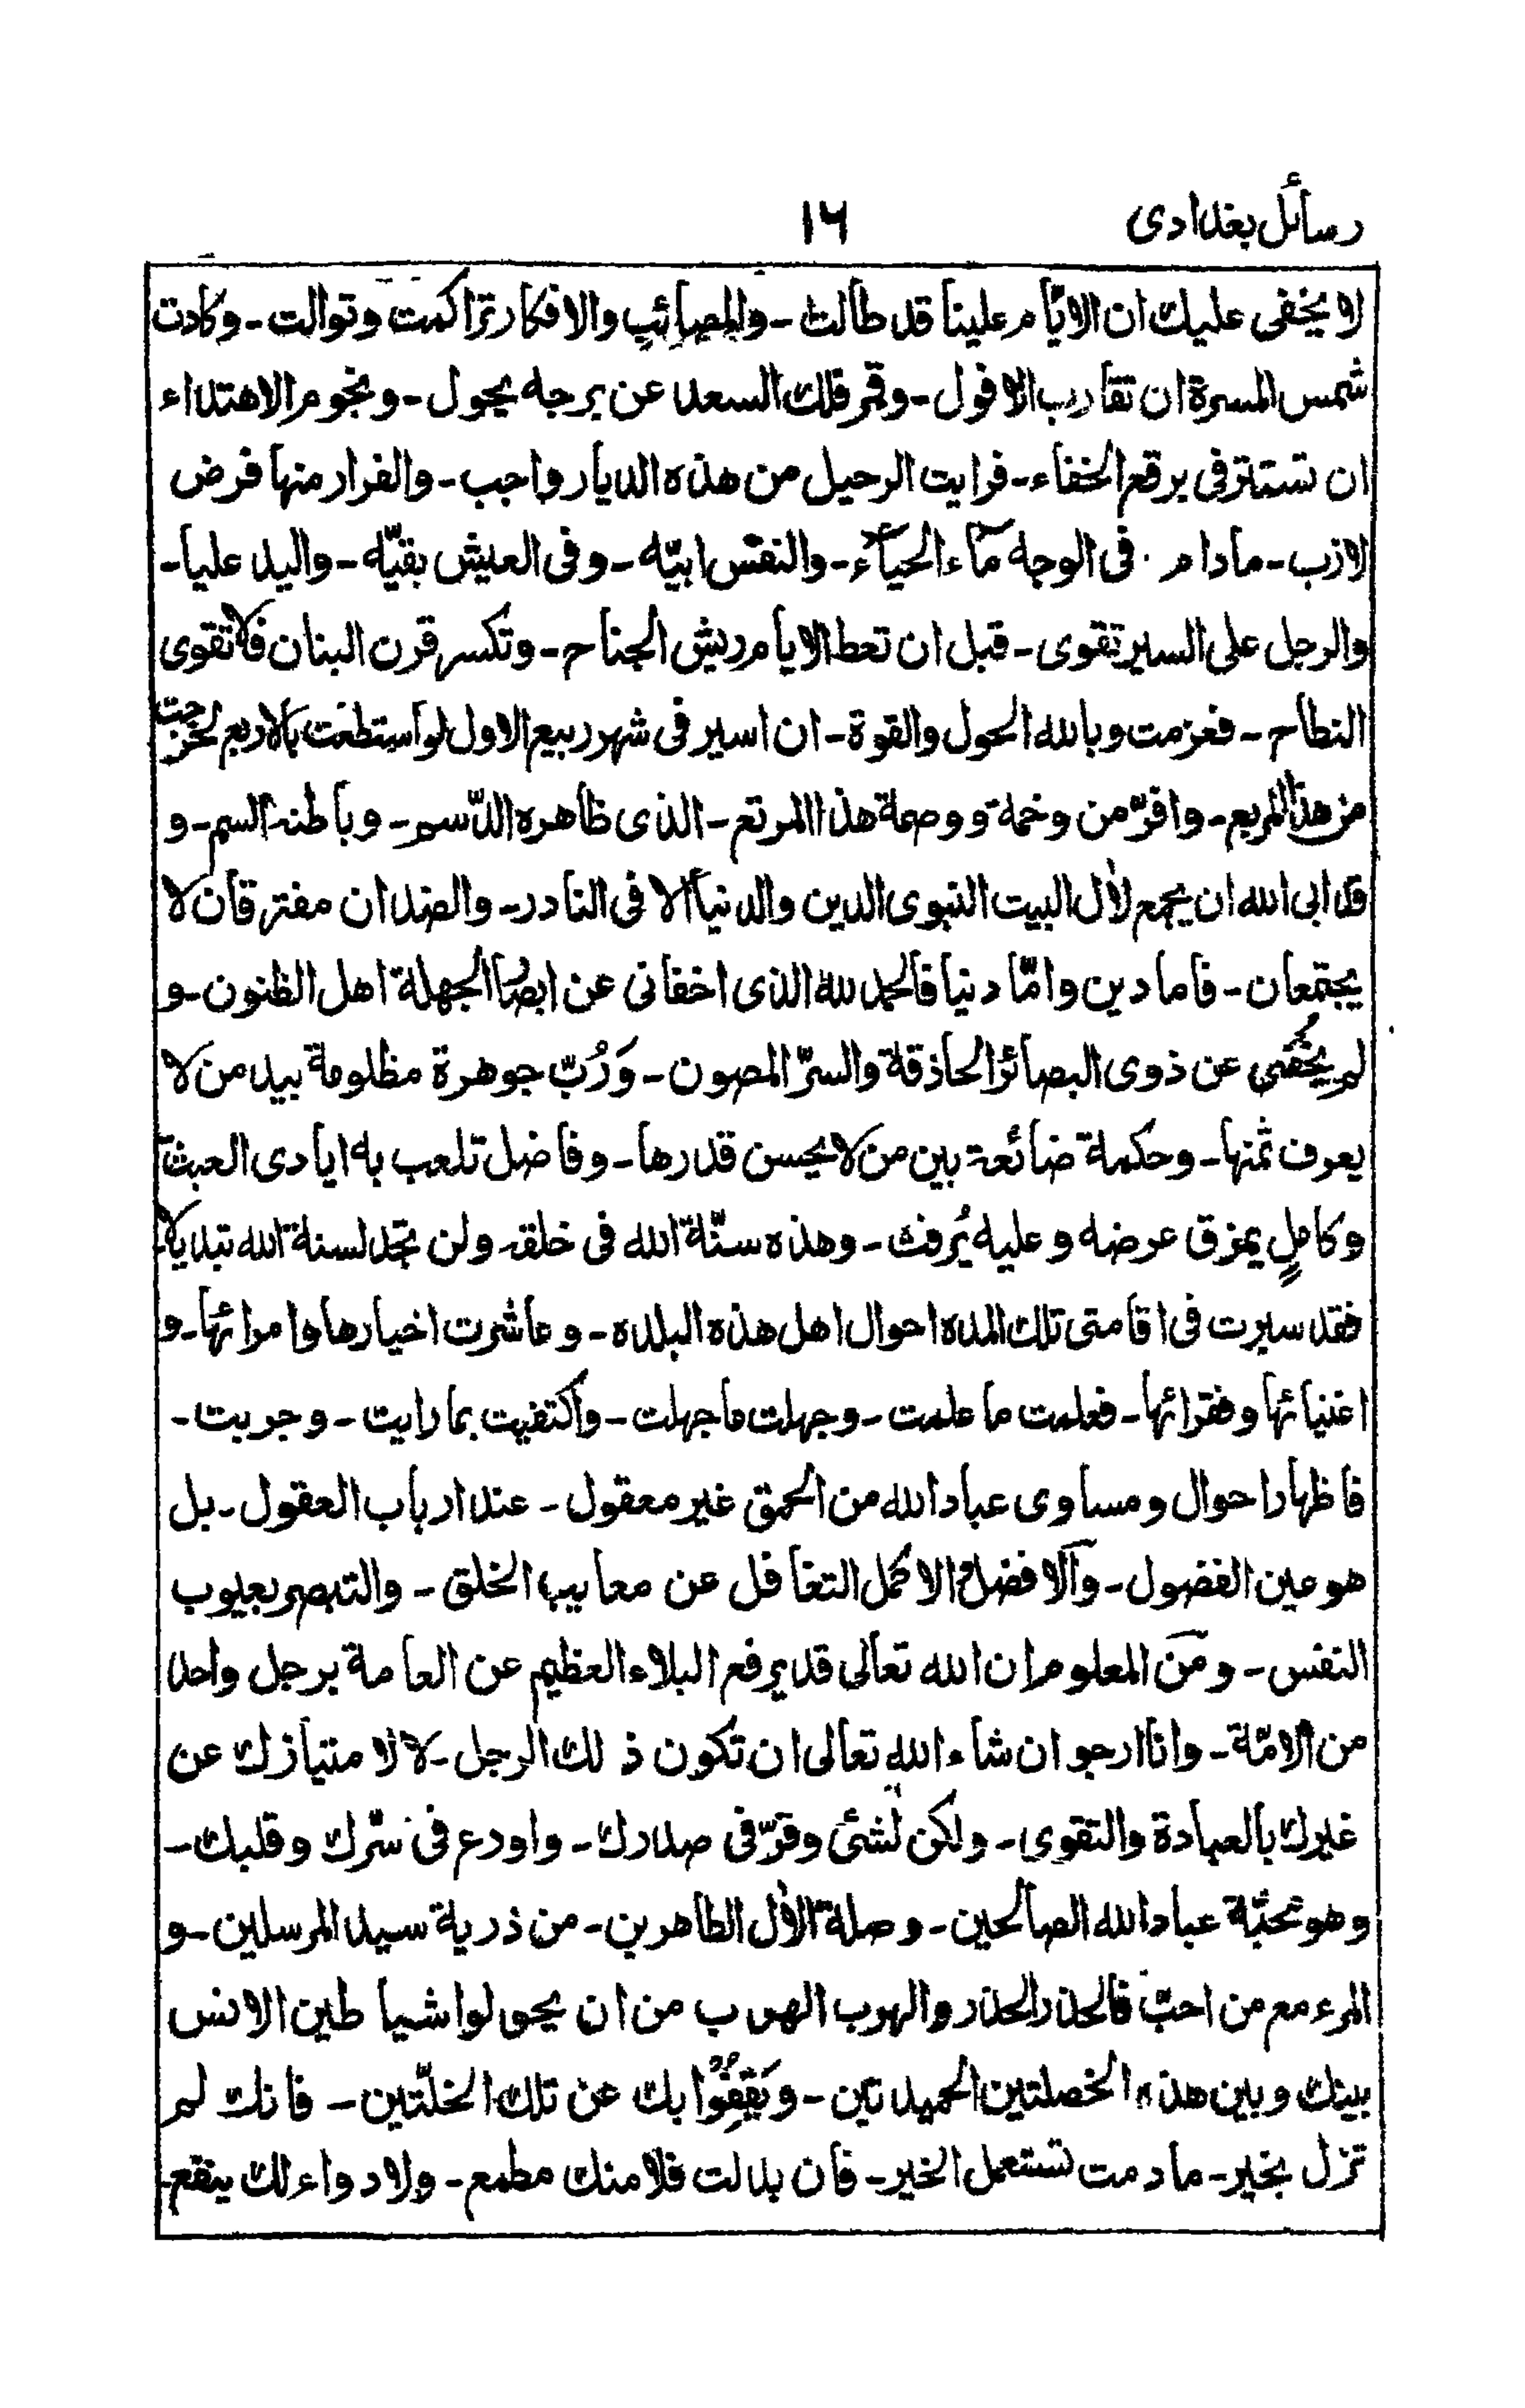 رسائل بغدادى
١٦
لا يخفى عليك ان الايّام علينا قد طالت - والمصائب والافكار تراكمت وتوالت - وكادت
شمس المسرة ان تقارب الافول - وقمر فلك السعد عن برجه يحول - ونجوم الاهتداء
ان تستتر فى برقع الخفاء - فرايت الرحيل من هذه الديار واجب - والفرار منها فرض
لازب - مادام فى الوجه مآء الحيآء - والنفس ابيّه - وفى العيش بقيّه - واليد عليا -
والرجل على السير تقوى - قبل ان تحط الايام ريش الجناح - وتكسر قرن البنان فلا تقوى
النطاح - فعزمت وبالله الحول والقوة - ان اسير فى شهر ربيع الاول لو استطعت بالاربع لخرجت
من هذا المربع - وافرّ من وخمة ووصمة هذا المرتع - الذى ظاهره الدّسم - وباطنه السم - و
قد ابى الله ان يجمع لآل البيت النبوى الدين والدنيا الا فى النادر - والضدان مفترقان لا
يجتمعان - فاما دين وامّا دنيا فالحمد لله الذى اخفانى عن ابصار الجهلة اهل الظنون - و
لم يخفنى عن ذوى البصائر الحاذقة والسرّ المصون - وَرُبّ جوهرة مظلومة بيد من لا
يعرف ثمنها - وحكمة ضائعة بين من لا يحسن قدرها - وفاضل تلعب به ايادى العبث
وكاملٍ يمزق عرضه وعليه يُرفث - وهذه سنّة الله فى خلقه ولن تجد لسنة الله تبديلا
فقد سيرت فى اقامتى تلك المده احوال اهل هذه البلده - وعاشرت اخيارها وامرائها - و
اغنيائها وفقرائها - فعلمت ما علمت - وجهلت ما جهلت - واكتفيت بما رايت - وجربت -
فاظهار احوال ومساوى عباد الله من الحمق غير معقول - عند ارباب العقول - بل
هو عين الفضول - وآلافضل الاكمل التغافل عن معايب الخلق - والتبصر بعيوب
النفس - ومن المعلوم ان الله تعالى قد يرفع البلاء العظيم عن العامة برجل واحد
من الامّة - وانا ارجو ان شاء الله تعالى ان تكون ذلك الرجل - لا لامتيازك عن
غيرك بالعبادة والتقوى - ولكن لشئ وقرّ فى صدرك - واودع فى سّرك وقلبك -
وهو محبّة عباد الله الصالحين - وصلة الآل الطاهرين - من ذرية سيد المرسلين - و
المرء مع من احبّ فالحذر الحذر والهرب الهرب من ان يحولوا شياطين الانس
بينك وبين هذه الخصلتين الحميدتين - ويَقِفُوْا بك عن تلك الخلّتين - فانك لم
تزل بخير - ما دمت تستعمل الخير - فان بدلت فلا منك مطمع - ولا دواء لك ينفع -